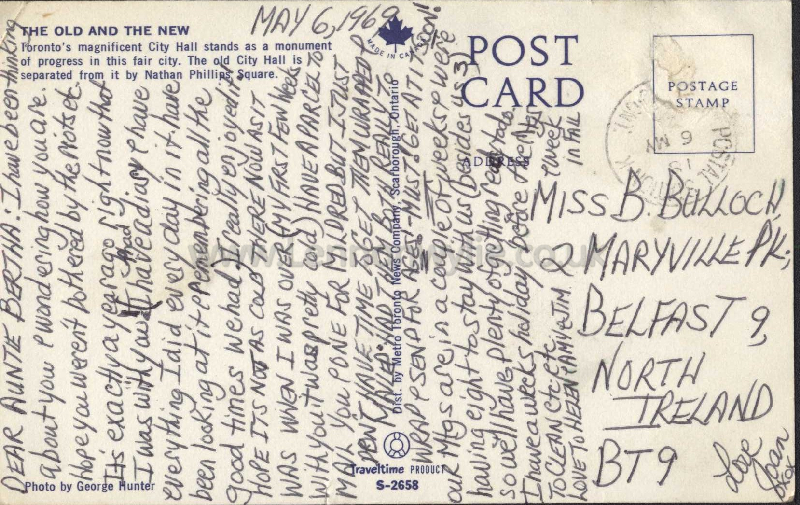 MAY 6, 1969
THE OLD AND THE NEW
Toronto's magnificent City Hall stands as a monument
of progress in this fair city. The old City Hall is
separated from it by Nathan Phillips Square.
MADE IN CANADA
POST
CARD
ADDRESS
POSTAGE
STAMP
DEAR AUNTIE BERTHA: I have been thinking
about you & wondering how you are.
Hope you weren't bothered by the
It's exactly a year ago right now that
I was with you all & have my I have
everything I did every day in it & have
been looking at it & remembering all the
good times we had. I really enjoyed it.
HOPE IT'S NOT AS COLD THERE NOW AS IT
WAS WHEN I WAS OVER (MY FIRST FEW WEEKS
WITH YOU it was pretty cold) I HAVE A PARCEL TO
MAIL YOU & ONE FOR MILDRED BUT I JUST
HAVEN'T HAVE TIME TO GET THEM WRAPPED &
MAILED. READY TO
WRAP & SEND FOR I MUST GET AT IT SOON!
our Mtgs are in a couple of weeks & we're
having eight to stay with us (besides us 3)
so we'll have plenty of getting ready to do.
I have a weeks holiday before then & 1 week
IN FALL
TO CLEAN etc etc.
LOVE TO HELEN & JIM.
Love
Joan
xoxox
MISS B. BULLOCH,
2 MARYVILLE PK,
BELFAST 9,
NORTH
IRELAND
BT9
Dist. by Metro Toronto News Company, Scarborough, Ontario
Traveltime PRODUCT
S-2658
Photo by George Hunter